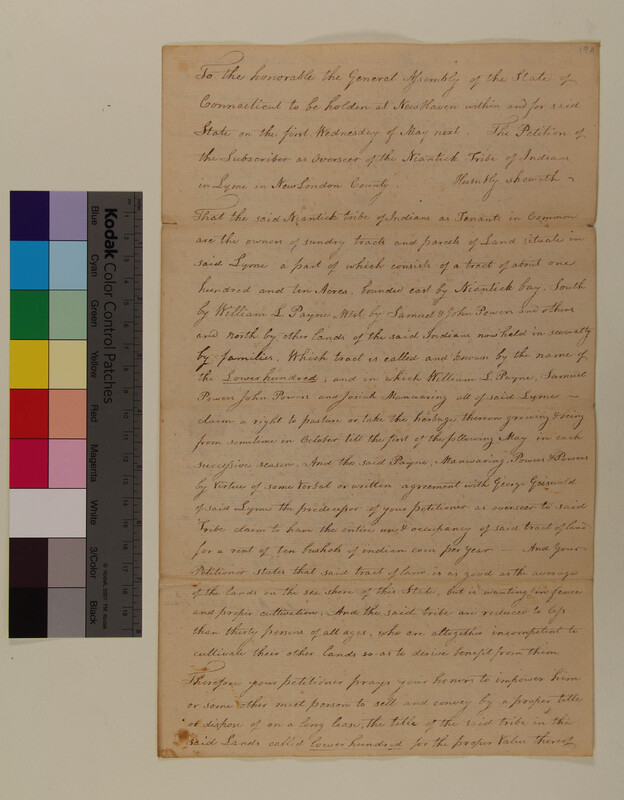 194
To the honorable the General Assembly of the State of
Connecticut to be holden at New Haven within and for said
State on the first Wednesday of May next. The Petition of
the Subscriber as Overseer of the Niantick Tribe of Indians
in Lyme in New London County. Humbly sheweth ~
That the said Niantick tribe of Indians as Tenants in Common
are the owners of sundry tracts and parcels of Land situate in
said Lyme a part of which consists of a tract of about one
hundred and ten Acres, bounded east by Niantick bay, South
by William L. Payne, West by Samuel & John Powers and others
and north by other lands of the said Indians now held in severalty
by families. Which tract is called and known by the name of
the Lowerhundred, and in which William L. Payne, Samuel
Powers John Powers and Josiah Manwaring all of said Lyme ~
claim a right to pasture or take the herbage thereon growing & being
from sometime in October till the first of the following May in each
successive season. And the said Payne, Manwaring, Powers & Powers
by virtue of some verbal or written agreement with George Griswold
of said Lyme the predecessor of your petitioner as overseer to said
Tribe claim to have the entire use & occupancy of said tract of land
for a rent of ten bushels of indian corn per year — And Your
Petitioner states that said tract of land is as good as the average
of the lands on the sea shore of this State, but is wanting in fence
and proper cultivation. And the said tribe are reduced to less
than thirty persons of all ages, who are altogether incompetent to
cultivate their other lands so as to derive benefit from them
Therefore your petitioner prays your honors to impower him
or some other meet person to sell and convey by a proper title
or dispose of on a long lease, the title of the said tribe in the
said Lands called lowerhundred for the proper value thereof
Kodak Color Control Patches
Blue
Cyan
Green
Yellow
Red
Magenta
White
3/Color
Black